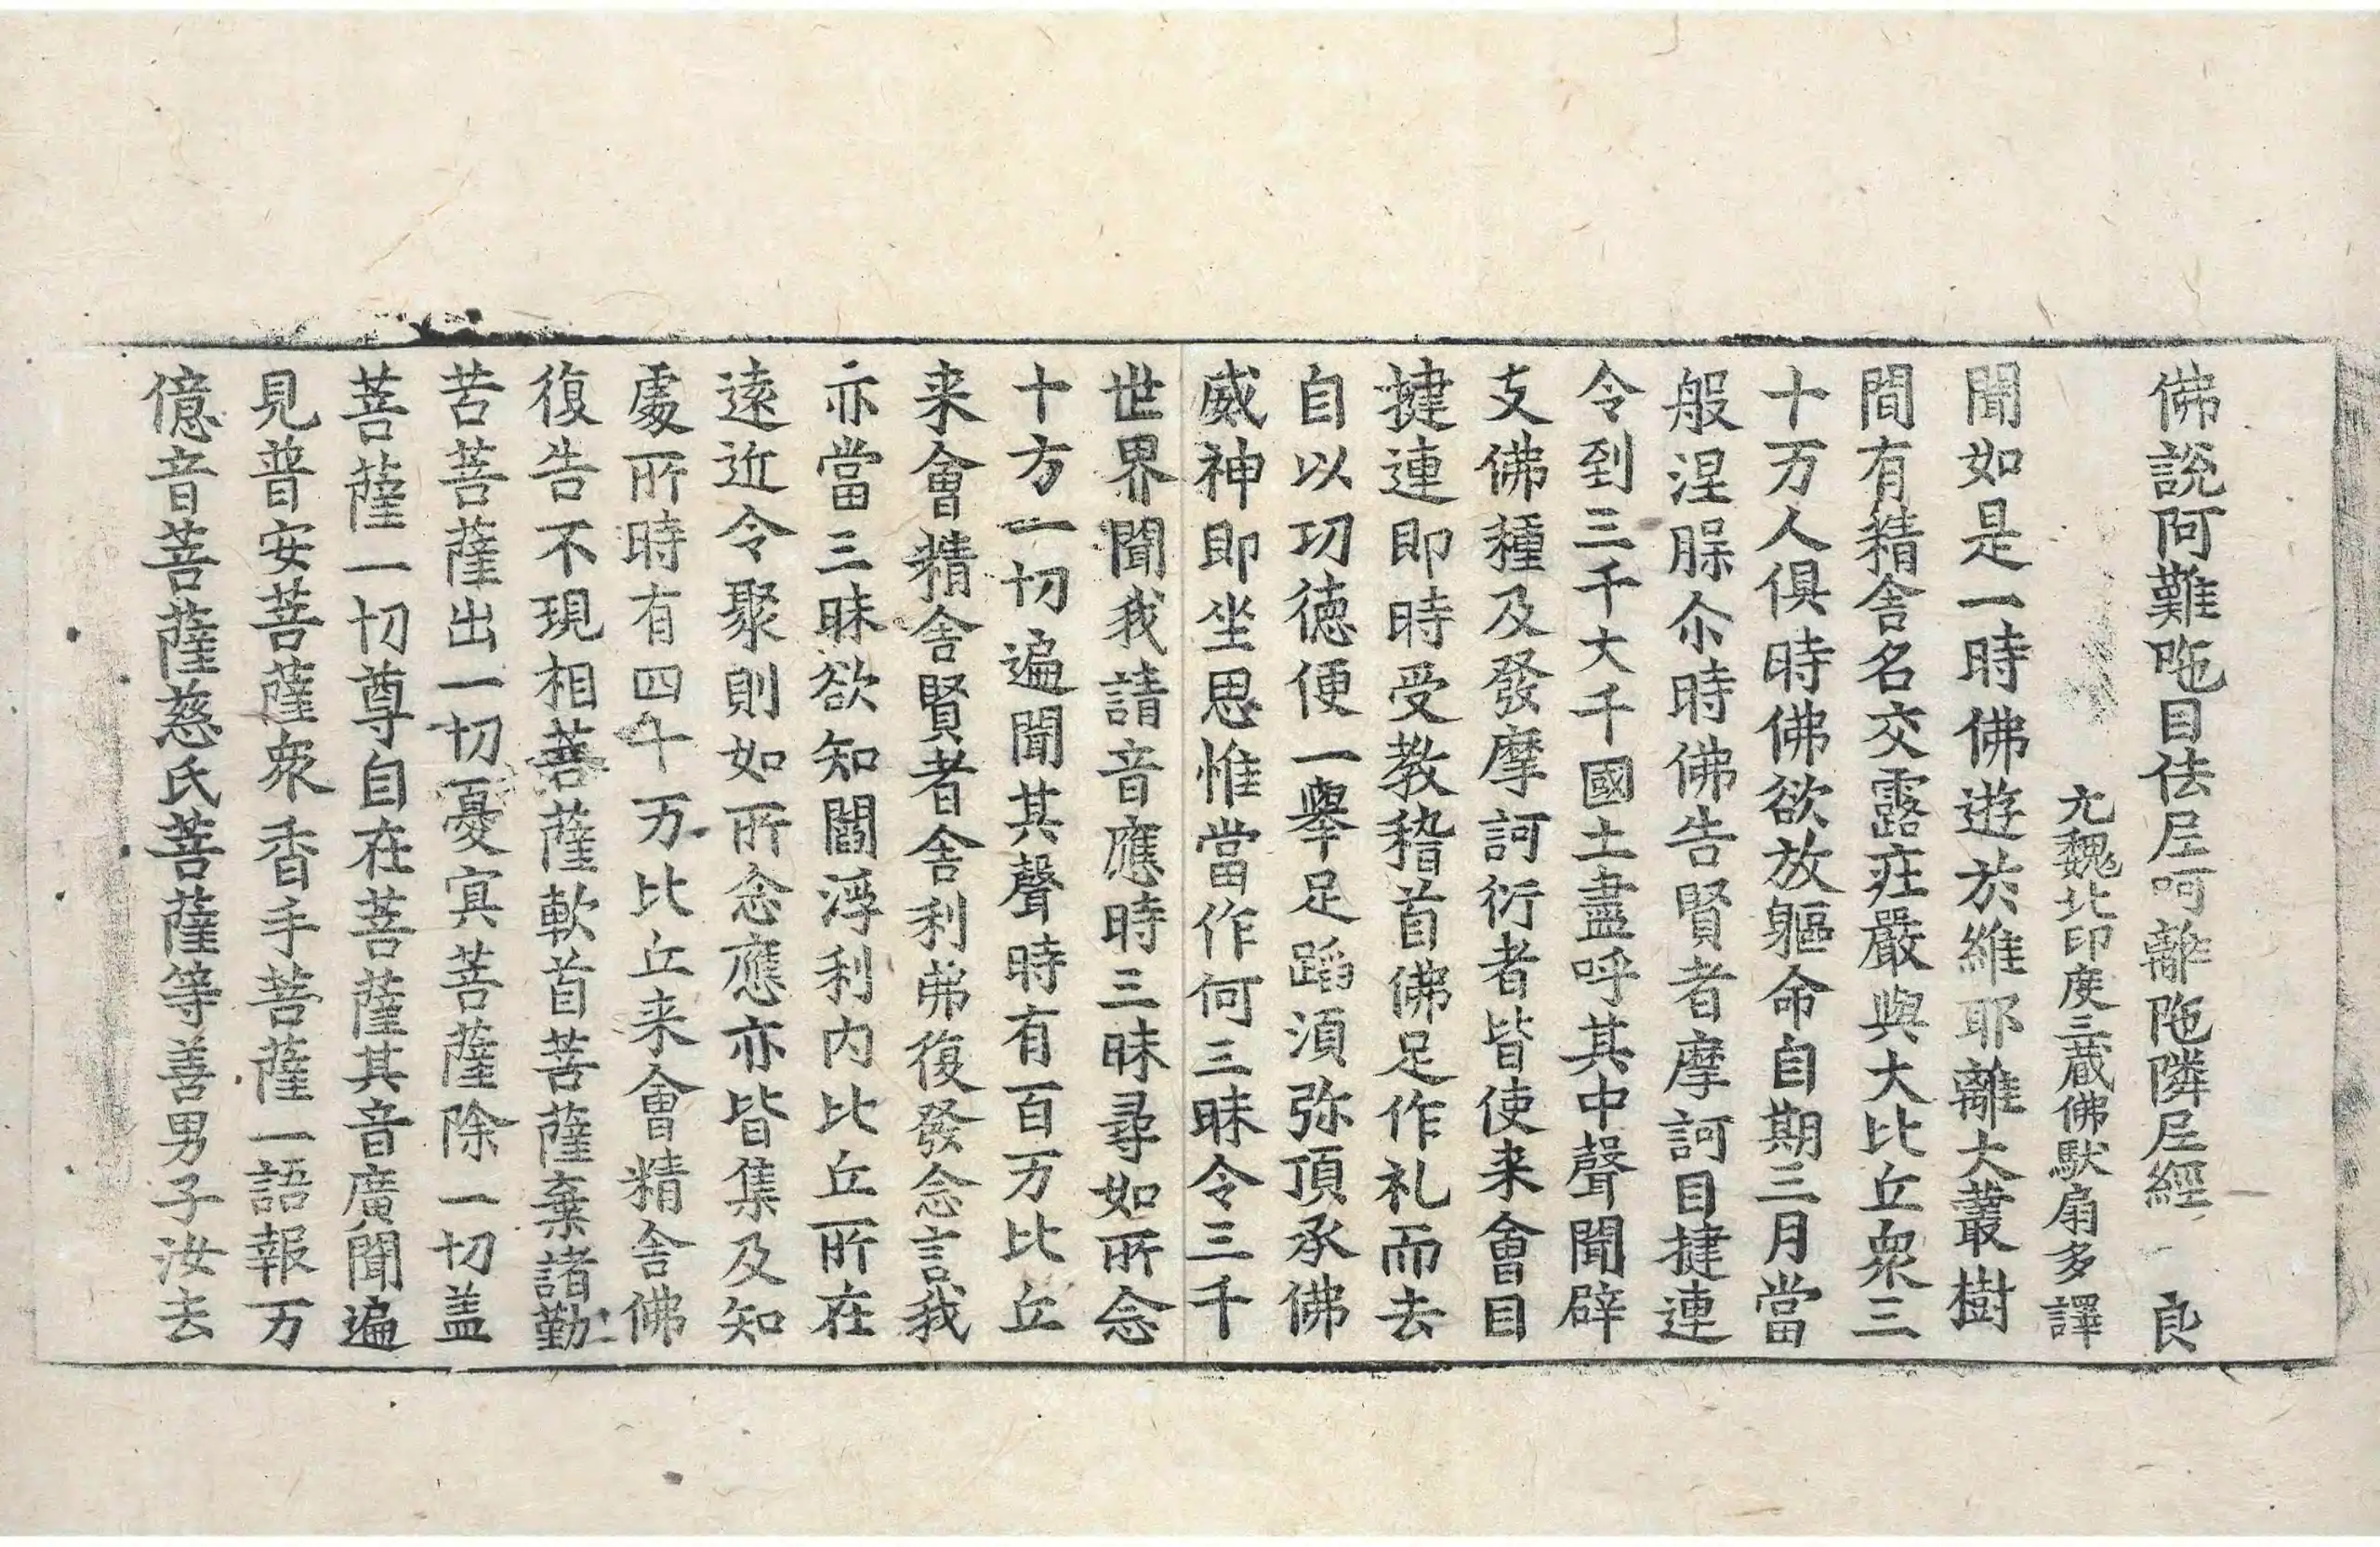 佛說阿難陁目佉尼呵離陁隣尼經 良
元魏北印度三藏佛馱扇多譯
聞如是一時佛遊於維耶離大叢樹
間有精舍名交露莊嚴與大比丘衆三
十万人俱時佛欲放軀命自期三月當
般涅脲尒時佛告賢者摩訶目揵連
令到三千大千國土盡呼其中聲聞辟
支佛種及發摩訶衍者皆使来會目
揵連即時受教稽首佛足作礼而去
自以功德便一舉足蹈湏弥頂承佛
威神即坐思惟當作何三昧令三千
世界聞我請音應時三昧尋如所念
十方一切遍聞其聲時有百万比丘
来會精舍賢者舍利弗復發念言我
亦當三昧欲知閻浮利内比丘所在
遠近令聚則如所念應亦皆集及知
處所時有四千万比丘来會精舍佛
復告不現相菩薩軟首菩薩棄諸勤
苦菩薩出一切憂㝠菩薩除一切盖
菩薩一切尊自在菩薩其音廣聞遍
見普安菩薩衆香手菩薩一語報万
億音菩薩慈氏菩薩等善男子汝去